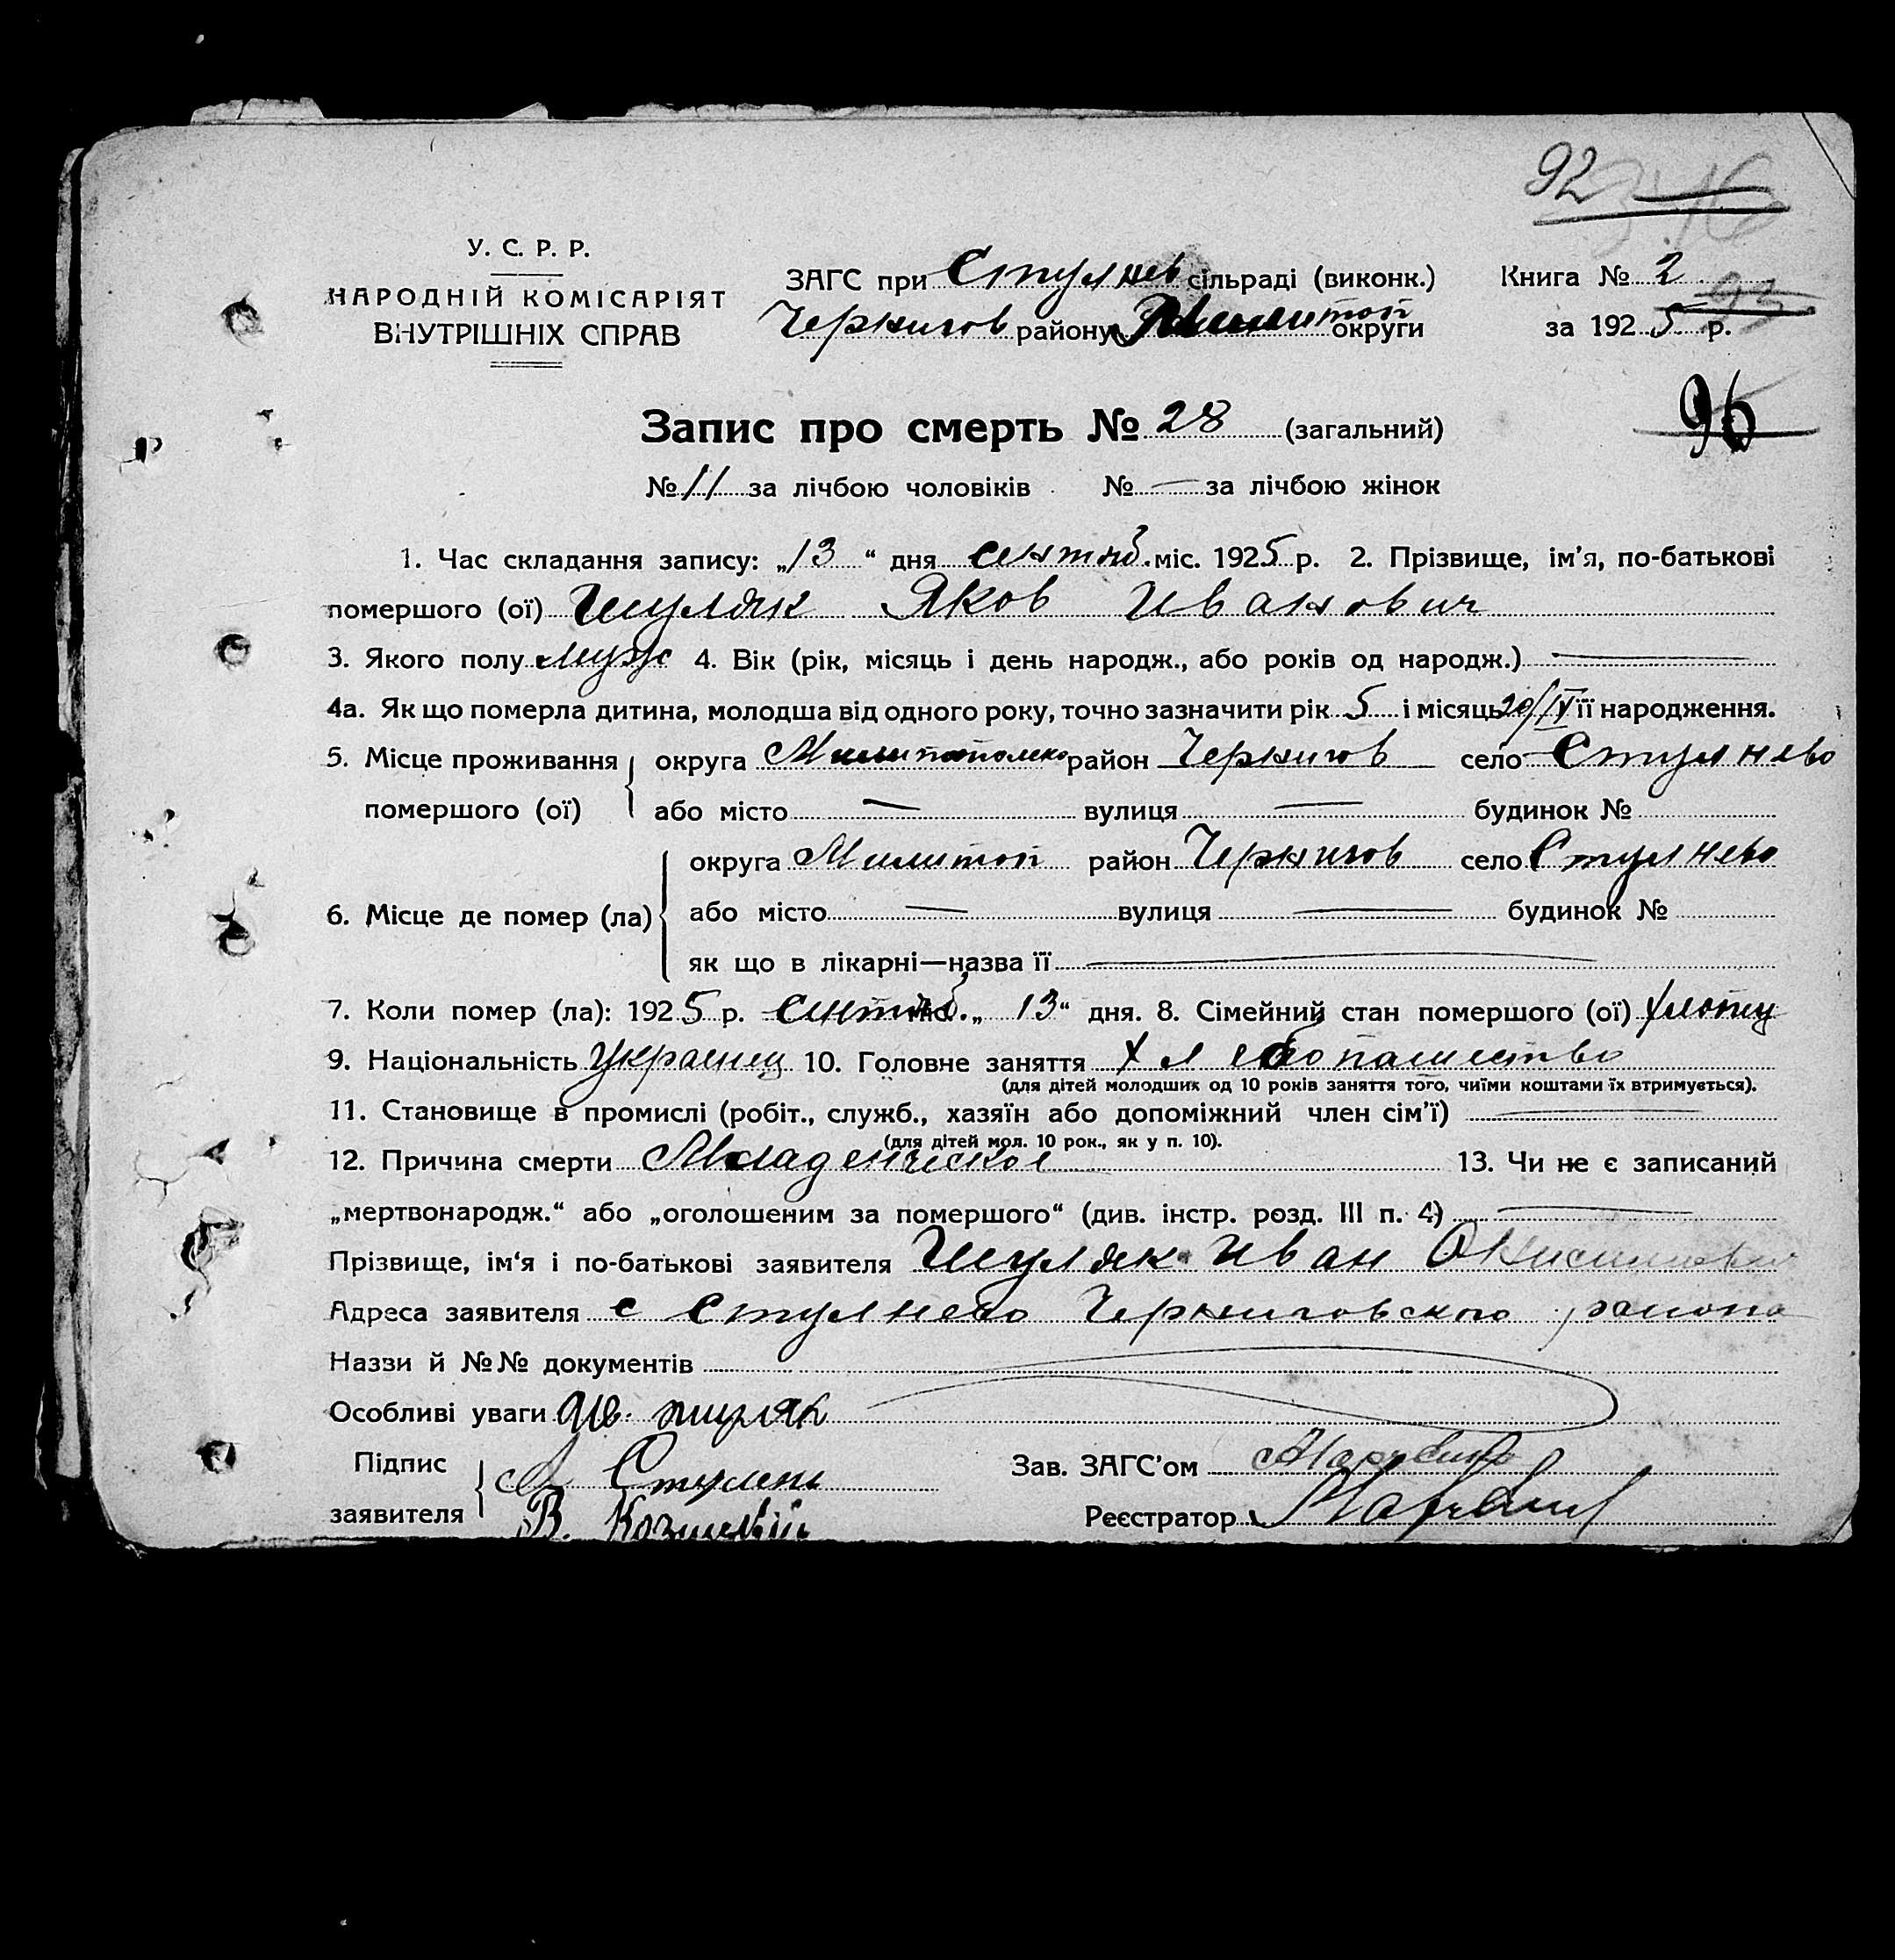 92
У. С. Р. Р.
НАРОДНІЙ КОМІСАРІЯТ
ВНУТРІШНІХ СПРАВ
ЗАГС при Стулнев сільраді (виконк.)
Чернигов району Мелитоп округи
Книга № 2
93
за 1925 р.
96
Запис про смерть № 28 (загальний)
№ 11 за лічбою чоловіків № — за лічбою жінок
1. Час складання запису: „13“ дня сентяб. міс. 1925 р. 2. Прізвище, ім’я, по-батькові
помершого (ої) Шуляк Яков Иванович
3. Якого полу муж 4. Вік (рік, місяць і день народж., або років од народж.) —
4а. Як що померла дитина, молодша від одного року, точно зазначити рік 5 і місяць 20/IV її народження.
5. Місце проживання помершого (ої) округа Мелитопольско район Чернигов село Стулнево
або місто — вулиця — будинок №
6. Місце де помер (ла) округа Мелитоп район Чернигов село Стулнево
або місто — вулиця — будинок №
як що в лікарні—назва її —
7. Коли помер (ла): 1925 р. сентяб. „13“ дня. 8. Сімейний стан помершого (ої) хлопец
9. Національність Украинец 10. Головне заняття Хлебопашество
(для дітей молодших од 10 років заняття того, чиїми коштами їх втримується).
11. Становище в промислі (робіт., служб., хазяїн або допоміжний член сім’ї) —
(для дітей мол. 10 рок., як у п. 10).
12. Причина смерти Младенческое 13. Чи не є записаний
„мертвонародж.“ або „оголошеним за помершого“ (див. інстр. розд. III п. 4) —
Прізвище, ім‘я і по-батькові заявителя Шуляк Иван
Адреса заявителя с Стулнево Черниговского района
Назви й №№ документів
Особливі уваги Ив. Шуляк
Підпис заявителя А Стулень
В.
Зав. ЗАГС’ом
Реєстратор